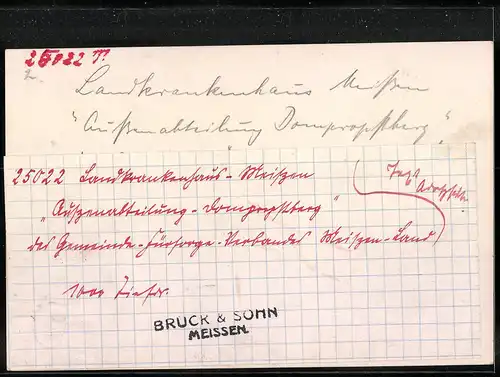 25022 M
Landkrankenhaus Meißen
"Außenabteilung Dompropstberg"
25022 Landkrankenhaus-Meiszen
"Auszenabteilung-Dompropstberg"
des Gemeinde-Fürsorge-Verbandes Meiszen-Land
Jetzt
1000
BRUCK & SOHN
MEISSEN.